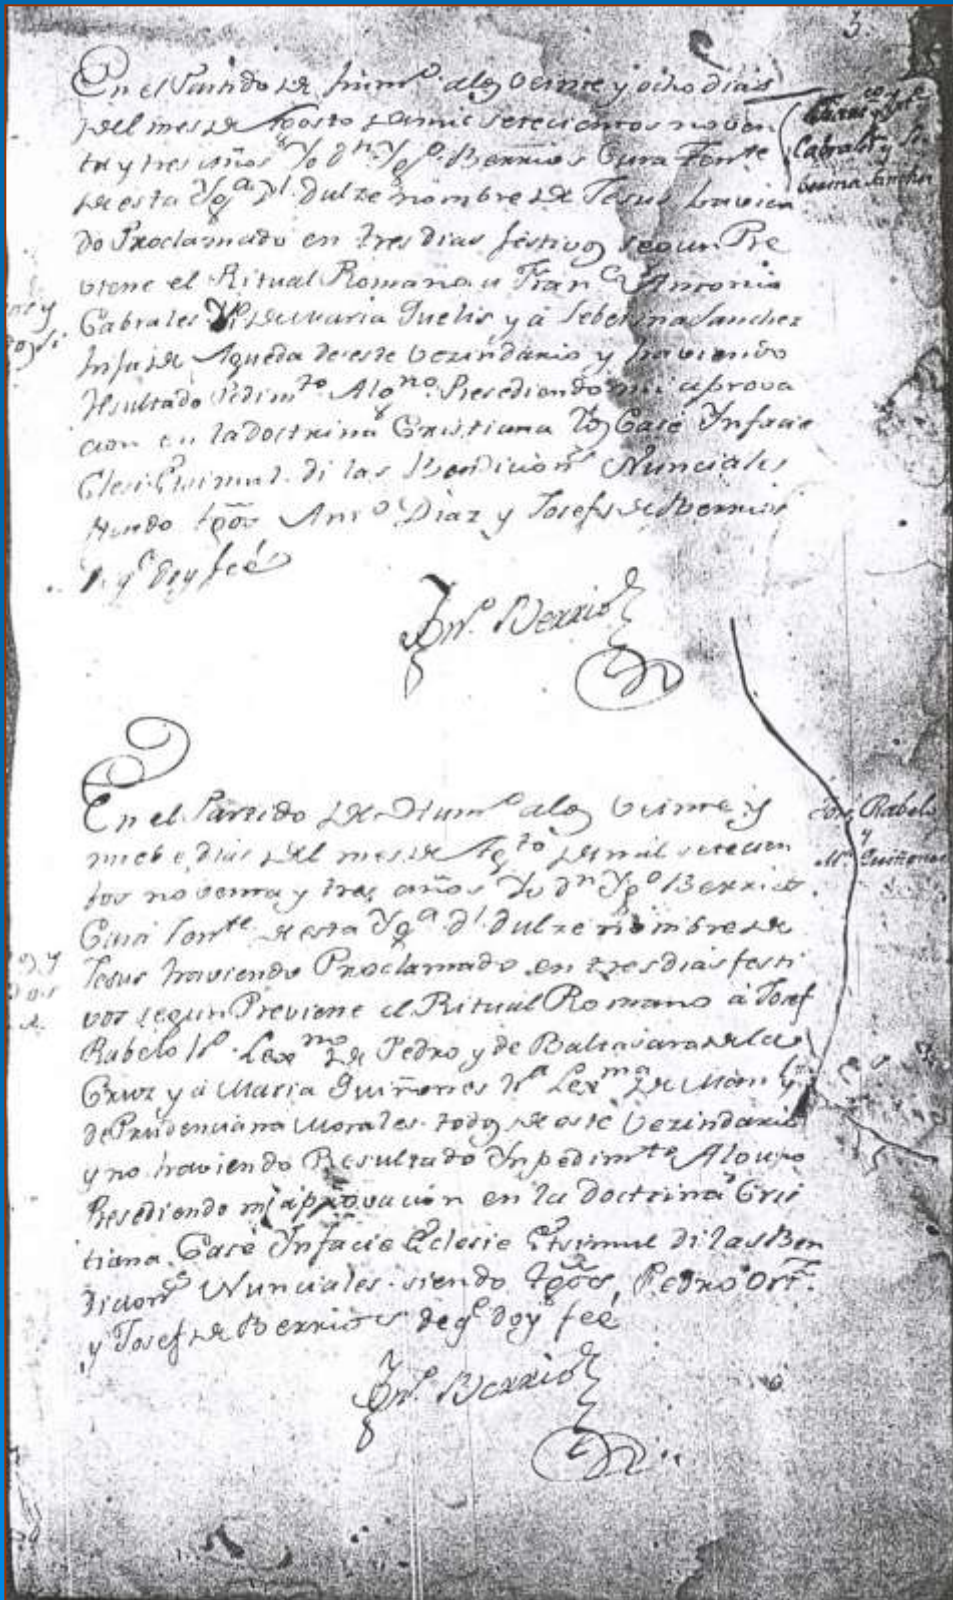 3.
En el Partido de Hum.º alos veinte y ocho dias
del mes de Agosto de mil setecientos noven
ta y tres años Yo Dn Yg.º Berrios Cura Tente
de esta Ygª Dl. Dulze nombre de Jesus havien
do Proclamado en tres dias festivos segun Pre
viene el Ritual Romano a Franco Antonio
Cabrales de Maria y á Seberina Sanchez
hija de Agueda de este Vezindario y haviendo
Resultado Pedimto Alono Presediendo mi aprova
cion en la Doctrina Cristiana los Casé Ynfacie
Clesi Etsimul di las Bendicions Nunciales
siendo tgos Anto Diaz y Josef de Berrios
De q.e Doy feé
Berrios
Cabrales y Se
berina Sanchez
En el Partido de Hum.º alos veinte y
nuebe dias del mes de Agto de mil setecien
tos noventa y tres años Yo Dn Yg.º Berrios
Cura Tente de esta Ygª Dl. Dulze nombre de
Jesus haviendo Proclamado en tres dias festi
vos segun Previene el Ritual Romano á Josef
Rabelo Hº Lexmo de Pedro y de Baltasara de la
Cruz y á Maria Quiñones Hª Lexma de Man.l y
de Prudenciana Morales todos de este Vezindario
y no haviendo Resultado Ynpedimto Alouno
Presediendo mi aprovacion en la Doctrina Cris
tiana Casé Ynfacie Eclesie Etsimul di las Ben
dicions Nunciales siendo tgos Pedro Ort.
y Josef de Berrios de q.e doy feé
Berrios
Rabelo
y
Mª Quiñones